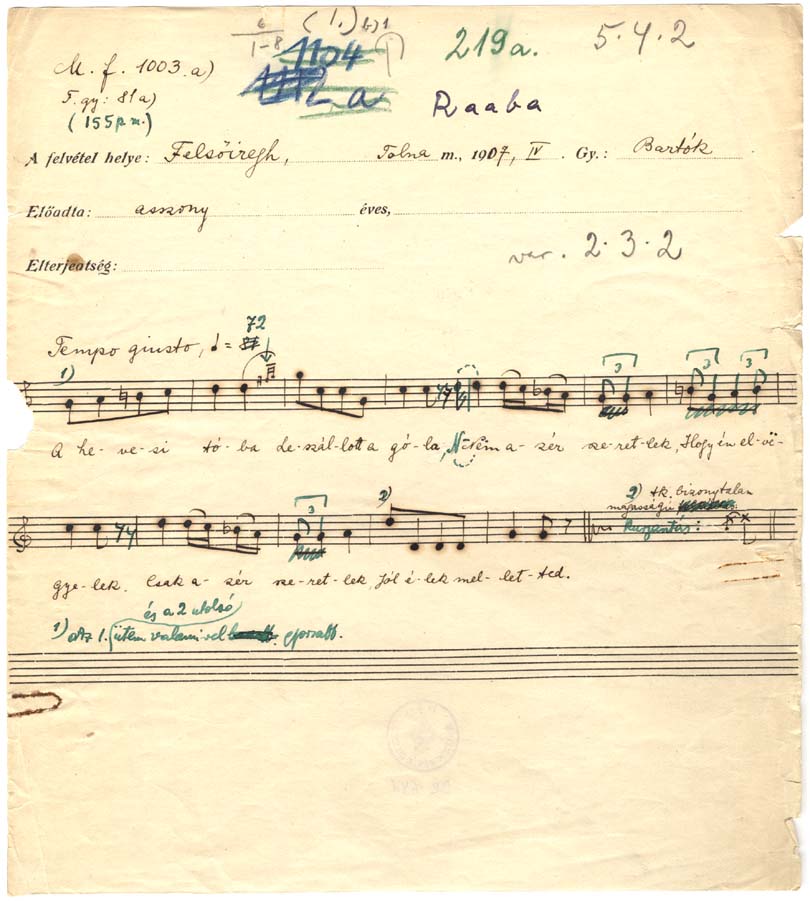 6
1-8
(1.)
M. f. 1003. a)
1104
219a.
5.4.2
F. gy: 81a)
1112 a
(155 p.m.)
Raaba
A felvétel helye: Felsőiregh, Tolna m., 1907, IV. Gy.: Bartók
Előadta: asszony éves,
var. 2.3.2
Elterjedtség:
72
Tempo giusto, =
1)
3 3 3
A he-ve-si tó-ba le-szál-lott a gó-la, Nem a-zér sze-ret-lek, Hogy én el-vë-
2)
3
2) tk. bizonytalan
magasságú
gye-lek. Csak a-zér sze-ret-lek, Jól é-lek mel-let-ted.
és a 2 utolsó
1) Az 1. ütem valamivel gyorsabb.